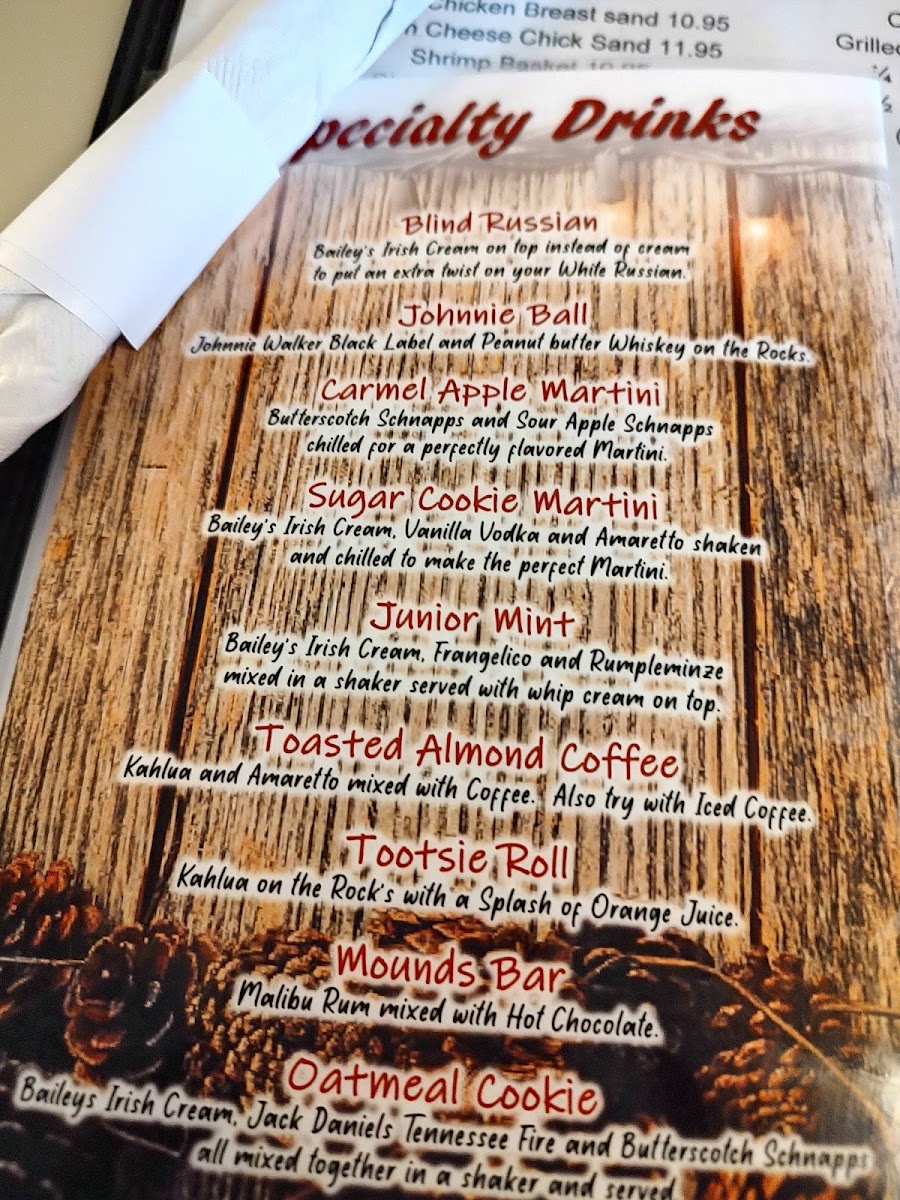 Chicken Breast sand 10.95
Cheese Chick Sand 11.95
Shrimp Basket
Grilled
¼
½
pecialty Drinks
Blind Russian
Bailey's Irish Cream on top instead of cream
to put an extra twist on your White Russian.
Johnnie Ball
Johnnie Walker Black Label and Peanut butter Whiskey on the Rocks.
Carmel Apple Martini
Butterscotch Schnapps and Sour Apple Schnapps
chilled for a perfectly flavored Martini.
Sugar Cookie Martini
Bailey's Irish Cream, Vanilla Vodka and Amaretto shaken
and chilled to make the perfect Martini.
Junior Mint
Bailey's Irish Cream, Frangelico and Rumpleminze
mixed in a shaker served with whip cream on top.
Toasted Almond Coffee
Kahlua and Amaretto mixed with Coffee. Also try with Iced Coffee.
Tootsie Roll
Kahlua on the Rock's with a Splash of Orange Juice.
Mounds Bar
Malibu Rum mixed with Hot Chocolate.
Oatmeal Cookie
Baileys Irish Cream, Jack Daniels Tennessee Fire and Butterscotch Schnapps
all mixed together in a shaker and served